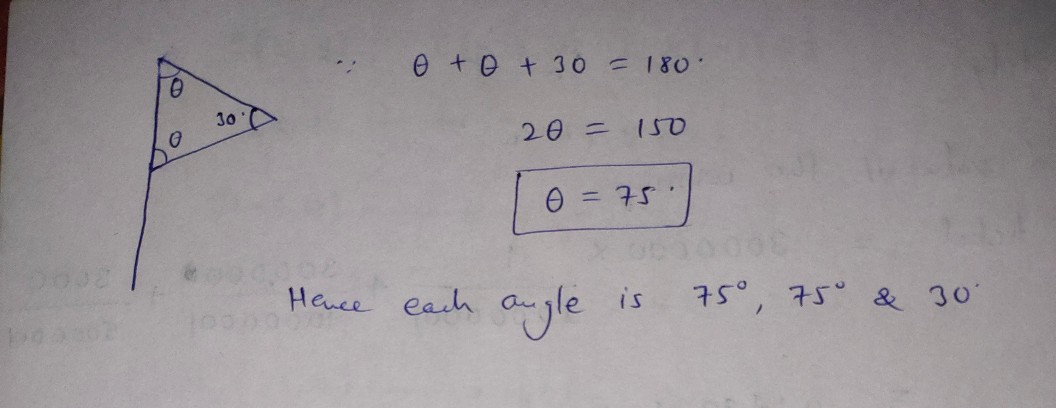 ∵ θ + θ + 30 = 180°
θ
30°
θ
2θ = 150
θ = 75°
Hence each angle is 75°, 75° & 30°